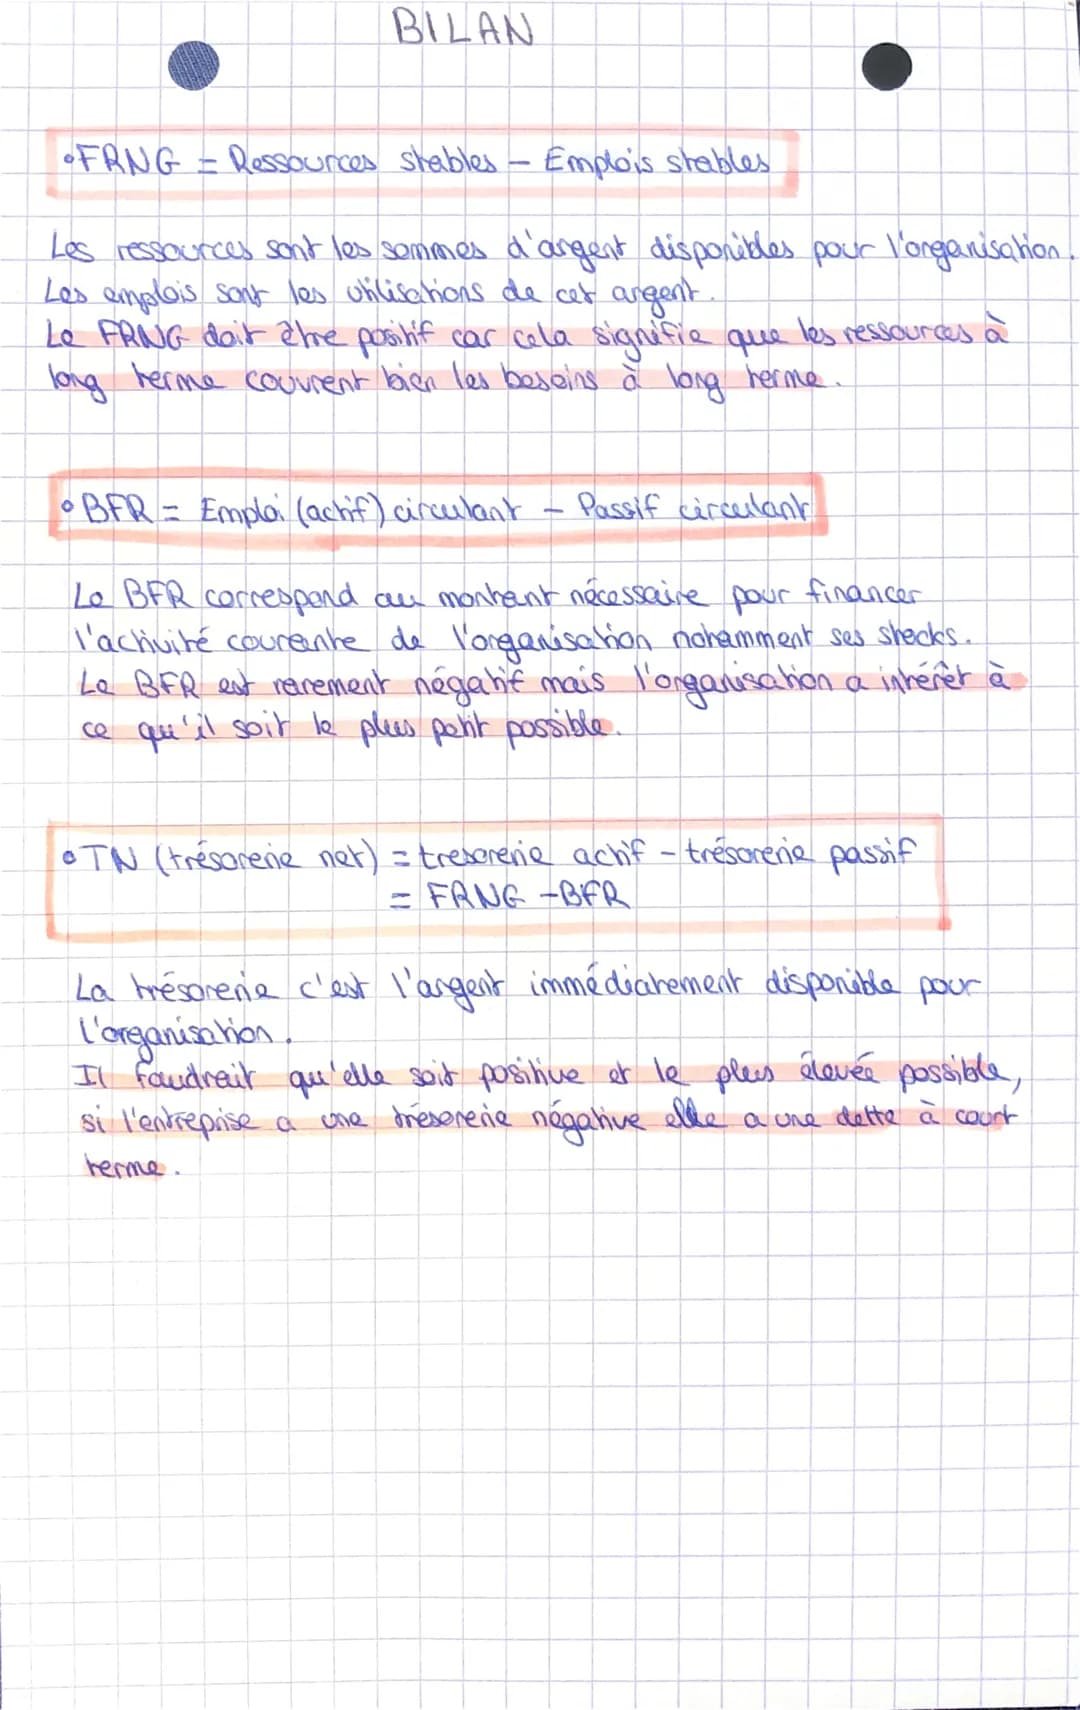 BILAN
•FRNG = Ressources stables – Emplois stables
Les ressources sont les sommes d'argent disponibles pour l'organisation.
Les emplois sont les utilisations de cet argent.
Le FRNG doit être positif car cela signifie que les ressources à
long terme couvrent bien les besoins à long terme.
•BFR = Emploi (actif) circulant – Passif circulant
Le BFR correspond au montant nécessaire pour financer
l'activité courante de l'organisation notamment ses stocks.
Le BFR est rarement négatif mais l'organisation a intérêt à
ce qu'il soit le plus petit possible.
•TN (trésorerie net) = tresorerie actif – trésorerie passif
= FRNG – BFR
La trésorerie c'est l'argent immédiatement disponible pour
l'organisation.
Il faudrait qu'elle soit positive et le plus élevée possible,
si l'entreprise a une trésorerie négative elle a une dette à court
terme.